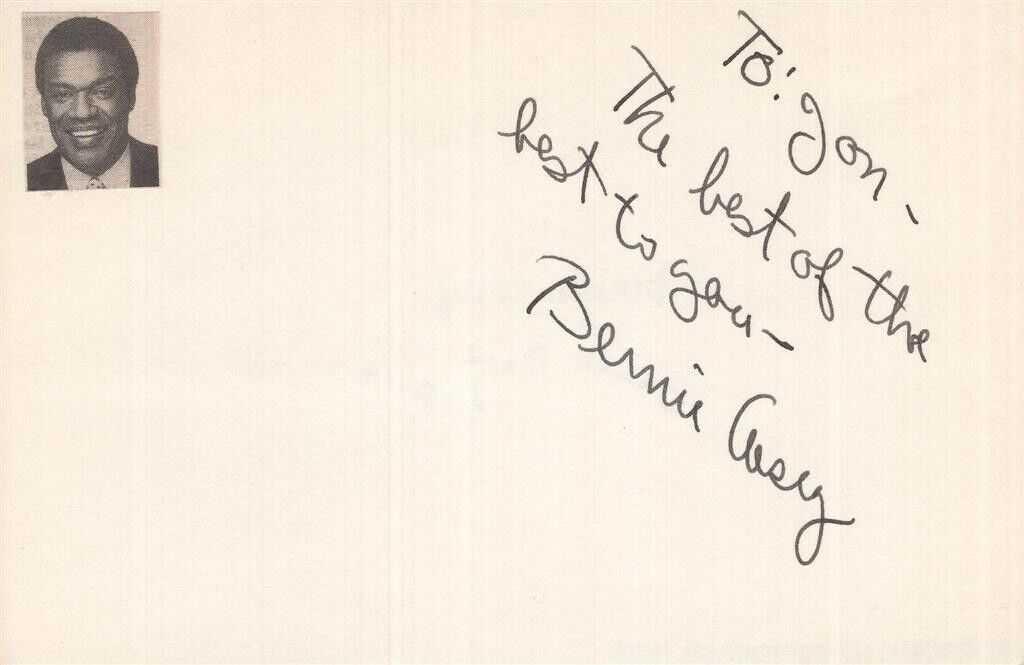 To: Jon -
The best of the
best to you -
Bernie Casey